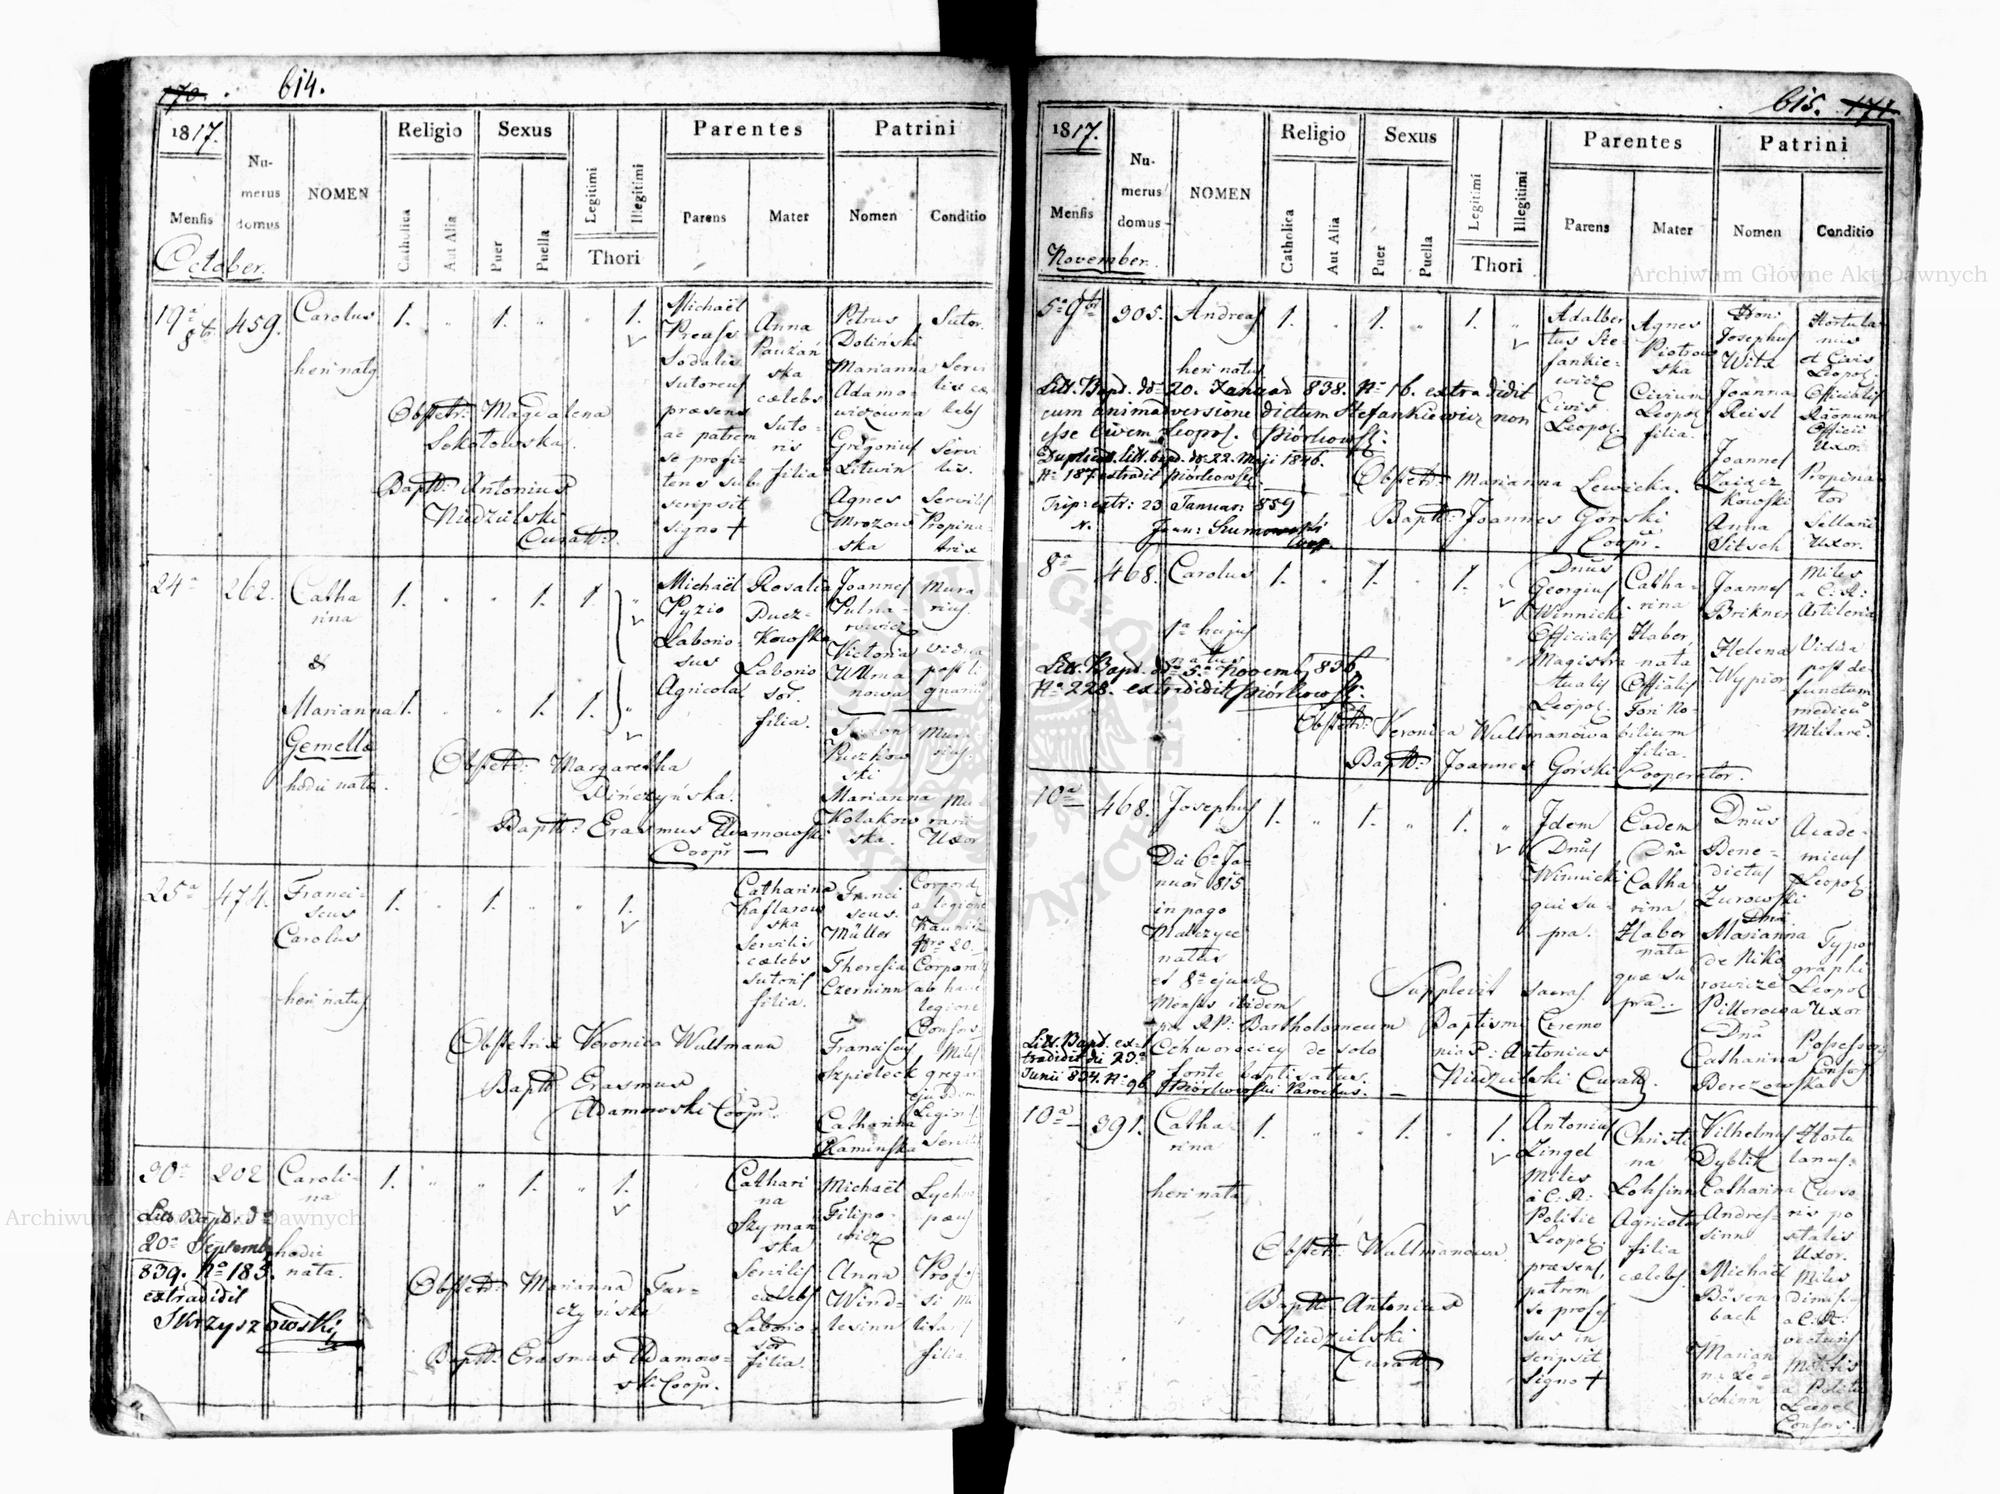 170. 614.
1817.
Mensis
October.
Numerus domus
NOMEN
Religio
Catholica
Aut Alia
Sexus
Puer
Puella
Legitimi
Illegitimi
Thori
Parentes
Parens
Mater
Patrini
Nomen
Conditio
19a 8br
459.
Carolus
heri natus
1.
1.
1.
Michaël
Preuss
Sodalis
sutoreus
præsens
ac patrem
se profi-
tens sub-
scripsit
signo +
Anna
Paużań
ska
cælebs
suto-
ris
filia
Petrus
Doliński
Marianna
Adamo-
wiczowna
Gregorius
Litwin
Agnes
Mrozows
ska
Sutor.
Servi
lis cæ
lebs
Servi
lis.
Servilis
Propina
trix
Obstetr: Magdalena
Sokołowska.
Bapt: Antonius
Niedzielski
Curatt:
24a
262.
Catha
rina
&
Marianna
Gemellæ
hodie natæ.
1.
1.
1
1.
1.
1.
Michaël
Pyzio
Laborio-
sus
Agricola
Rosalia
Ducz-
kowska
Laborio
sor
filia.
Joannes
Pulna-
rowicz
Victoria
Ullma
nowa
Ruczkow
ski
Marianna
Kołakow
ska.
Mura
rius
vidua
post li
gnariu
Mu
rarii
Uxor
Obstetr: Margaretha
Dińczyńska.
Bapt: Erasmus Adamowski
Coopr
25a
474.
Franci-
scus
Carolus
heri natus
1.
1.
1.
Catharina
Kaflarow
ska
Servilis
cælebs
sutoris
filia.
Franci
scus
Müller
Theresia
Czerninn
Franciscus
Szpieleck
Catharina
Kaminska
Corporal
a legione
Kaunitz
Nro 20.
Corporalis
ab hac
legione
Consors
Miles
gregar
ejusdem
Legion
Servil
Obstetrix Veronica Wultmann
Bapt Erasmus
Adamowski Coopr.
30a
202
Caroli-
na
hodie
nata.
1.
1.
1.
Cathari
na
Szyman
ska
Servilis
cælebs
Laborio-
sor
filia.
Michaël
Filipo-
wicz
Anna
Wind-
lesinn
Lychno
pæus
Profes
si Mi
litaris
filia
Litt. Bapt. do
20a Septemb
839. No 183.
extradidit
Skrzyszowski
Obstetr: Marianna Tar-
czyńska
Bapt: Erasmus Adamow-
ski Coopr.
615. 171
1817.
Mensis
November.
Numerus domus
NOMEN
Religio
Catholica
Aut Alia
Sexus
Puer
Puella
Legitimi
Illegitimi
Thori
Parentes
Parens
Mater
Patrini
Nomen
Conditio
5a 9br
305.
Andreas
heri natus
1.
1.
1.
Adalber
tus Ste
fankie-
wicz
Civis
Leopol.
Agnes
Piotrow
ska
Civium
Leopol
filia.
Hon:
Josephus
Witz
Joanna
Reist
Joannes
Zaiącz
kowski
Anna
Sitsch
Hortula
nus
et Civis
Leopol.
Officialis
Raonum
Officii
Uxor.
Propina
tor
Sellarii
Uxor.
Litt. Bapt. do 20. Januar 838. No 16. extradidit
cum animadversione dictum Stefankiewicz non
esse Civem Leopol. Piórkowski.
Duplicat. litt. bapt. do 22. Maji 1846.
No 187 extradit Piórkowski.
Trip: extr: 23 Januar: 859
N.
Joan: Szumowski
Coop.
Obstetr: Marianna Lewicka.
Bapt: Joannes Górski
Coopr.
8a
468.
Carolus
1a hujus
natus
1.
1.
1.
Dnus
Georgius
Winnicki
Officialis
Magistra
tualis
Leopol.
Catha-
rina
Haber
nata
Offialis
Fori No-
bilium
filia.
Joannes
Brikner
Helena
Wypior
Miles
a C: R:
Artileria
Vidua
post de
functum
medicu
Militare.
Litt. Bapt. do 5a Novemb 836
No 228. extradidit Piórkowski.
Obstetr: Veronica Wultmanowa
Bapt: Joannes Górski Cooperator.
10a
468.
Josephus
Die 6a Ja-
nuar 815
in pago
Malczyce
natus
et 8a ejusd
Mensis ibidem
per RP: Bartholomeum
Cehworociey de solo
fonte baptisatus.
1.
1.
1.
Idem
Dnus
Winnicki
qui su-
pra.
Eadem
Dna
Catha
rina
Haber
nata
quæ su
pra.
Dnus
Bene-
dictus
Żurowski
Dna
Marianna
de Niko
rowicze
Pillerowa
Dna
Catharina
Berezowska
Acade-
micus
Leopol
Typo
graphi
Leopol
Uxor
Possessoris
Consors
Supplevit sacras
Baptismi Ceremo
nias P: Antonius
Niedzielski Curatt.
Litt. Bapt. ex-
tradidit die 23a
Junii 834. No 96. Piórkowski Parochus.
10a
391.
Catha
rina
heri nata
1.
1.
1.
Antonius
Zingel
Miles
a C: R:
Politie
Leopol:
præsens,
patrem
se profes
sus in
scripsit
signo +
Christi
na
Lohsinn
Agricolæ
filia
cælebs.
Vilhelmus
Dyblik
Catharina
Andres-
sinn
Michaël
Bösen
bach
Marian
na Le-
schinn
Hortu
lanus.
Curso
ris po
stalis
Uxor.
Miles
dimiss
a C: R:
Militis
a Politia
Leopol
Consors.
Obstetr: Wultmanowa
Bapt: Antonius
Niedzielski
Curatt.
Archiwum Główne Akt Dawnych
Archiwum Główne Akt Dawnych
ARCHIWUM GŁÓWNE AKT DAWNYCH